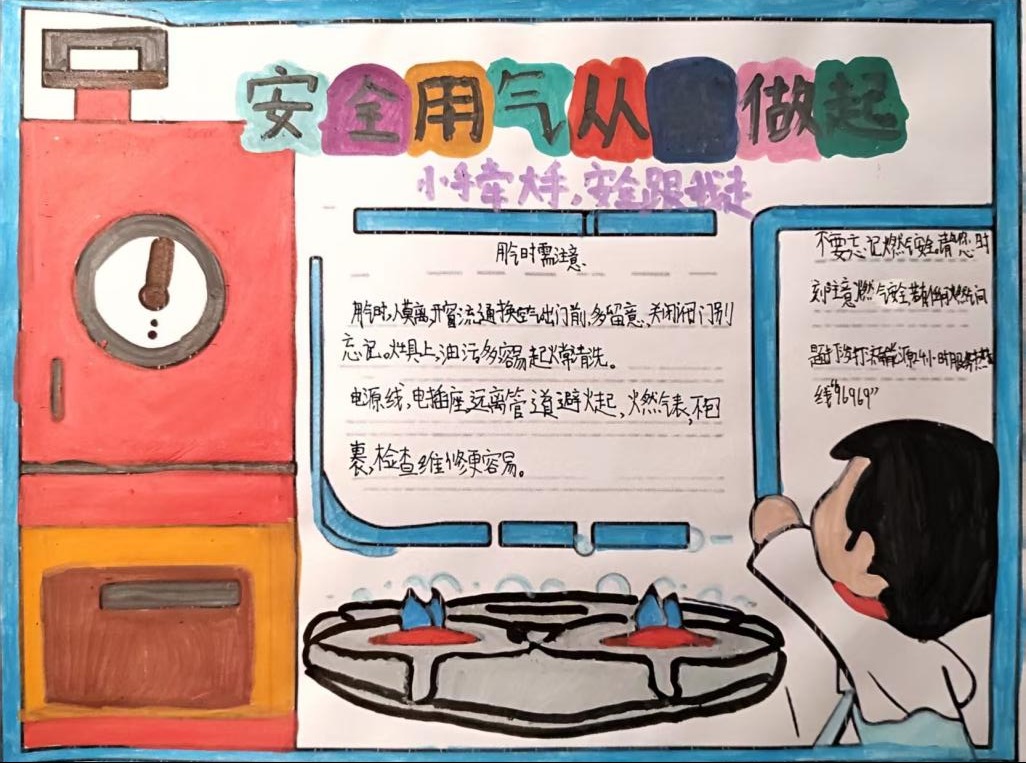 安全用气从 做起
小手牵大手,安全跟我走
用气时需注意
用气时,人莫离,开窗流通换空气出门前,多留意,关闭阀门别
忘记。灶具上,油污多容易起火常清洗。
电源线,电插座,远离管道避火起,燃气表,不包
裹,检查维修更容易。
不要忘记燃气安全,请您时
刻注意燃气安全 燃气问
题 拨打 能源24小时服务热
线"96969"